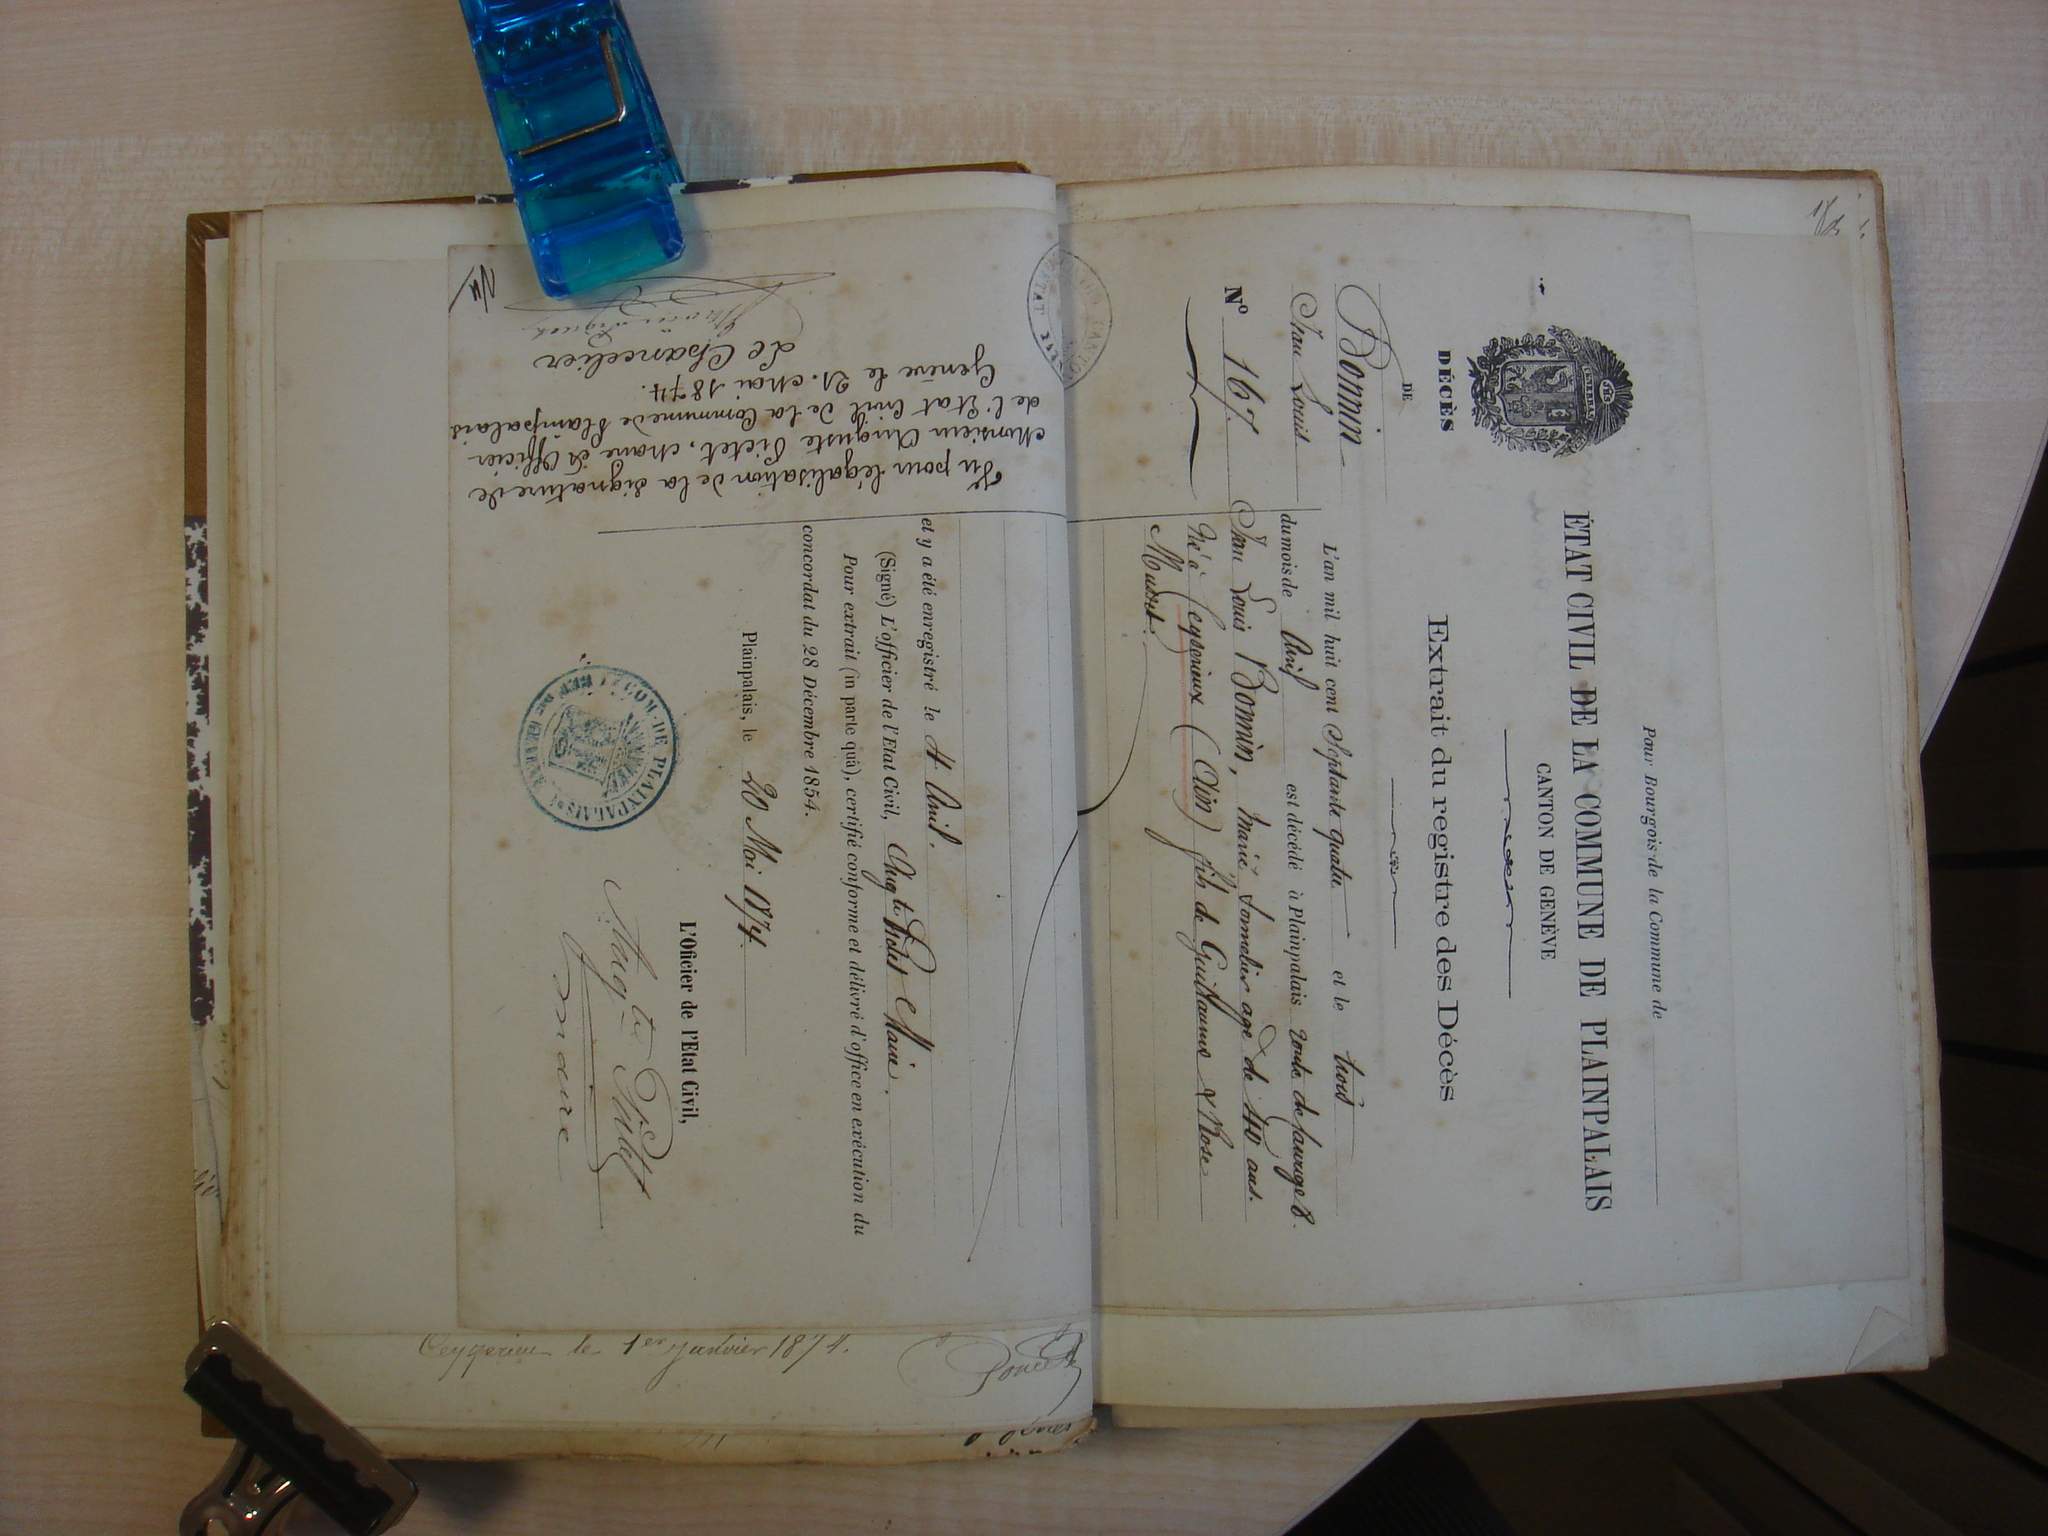 Pour Bourgeois de la Commune de
ÉTAT CIVIL DE LA COMMUNE DE PLAINPALAIS
CANTON DE GENÈVE
POST TENEBRAS LUX
DÉCÈS
DE
Extrait du registre des Décès
Bonnin
Jean Louis
No 167.
L'an mil huit cent Septante quatre et le trois
du mois de Avril est décédé à Plainpalais route de Carouge 8.
Jean Louis Bonnin, marié, Somelier agé de 40 ans.
Né à Ceyserieux (Ain) fils de Guillaume & Rose
et y a été enregistré le 4 Avril.
(Signé) L'officier de l'Etat Civil, Aug te Pictet Maire.
Pour extrait (in parte quà), certifié conforme et délivré d'office en exécution du
concordat du 28 Décembre 1854.
Plainpalais, le 20 Mai 1874.
L'Oficier de l'Etat Civil,
Aug te Pictet
maire
COM. DE PLAINPALAIS
Vu pour légalisation de la signature de
Monsieur Auguste Pictet, Maire et Officier
de l'Etat Civil de la Commune de Plainpalais
Genève le 21. Mai 1874.
Le Chancelier
Ceyzerieu le 1er Janvier 1874.
Poncet